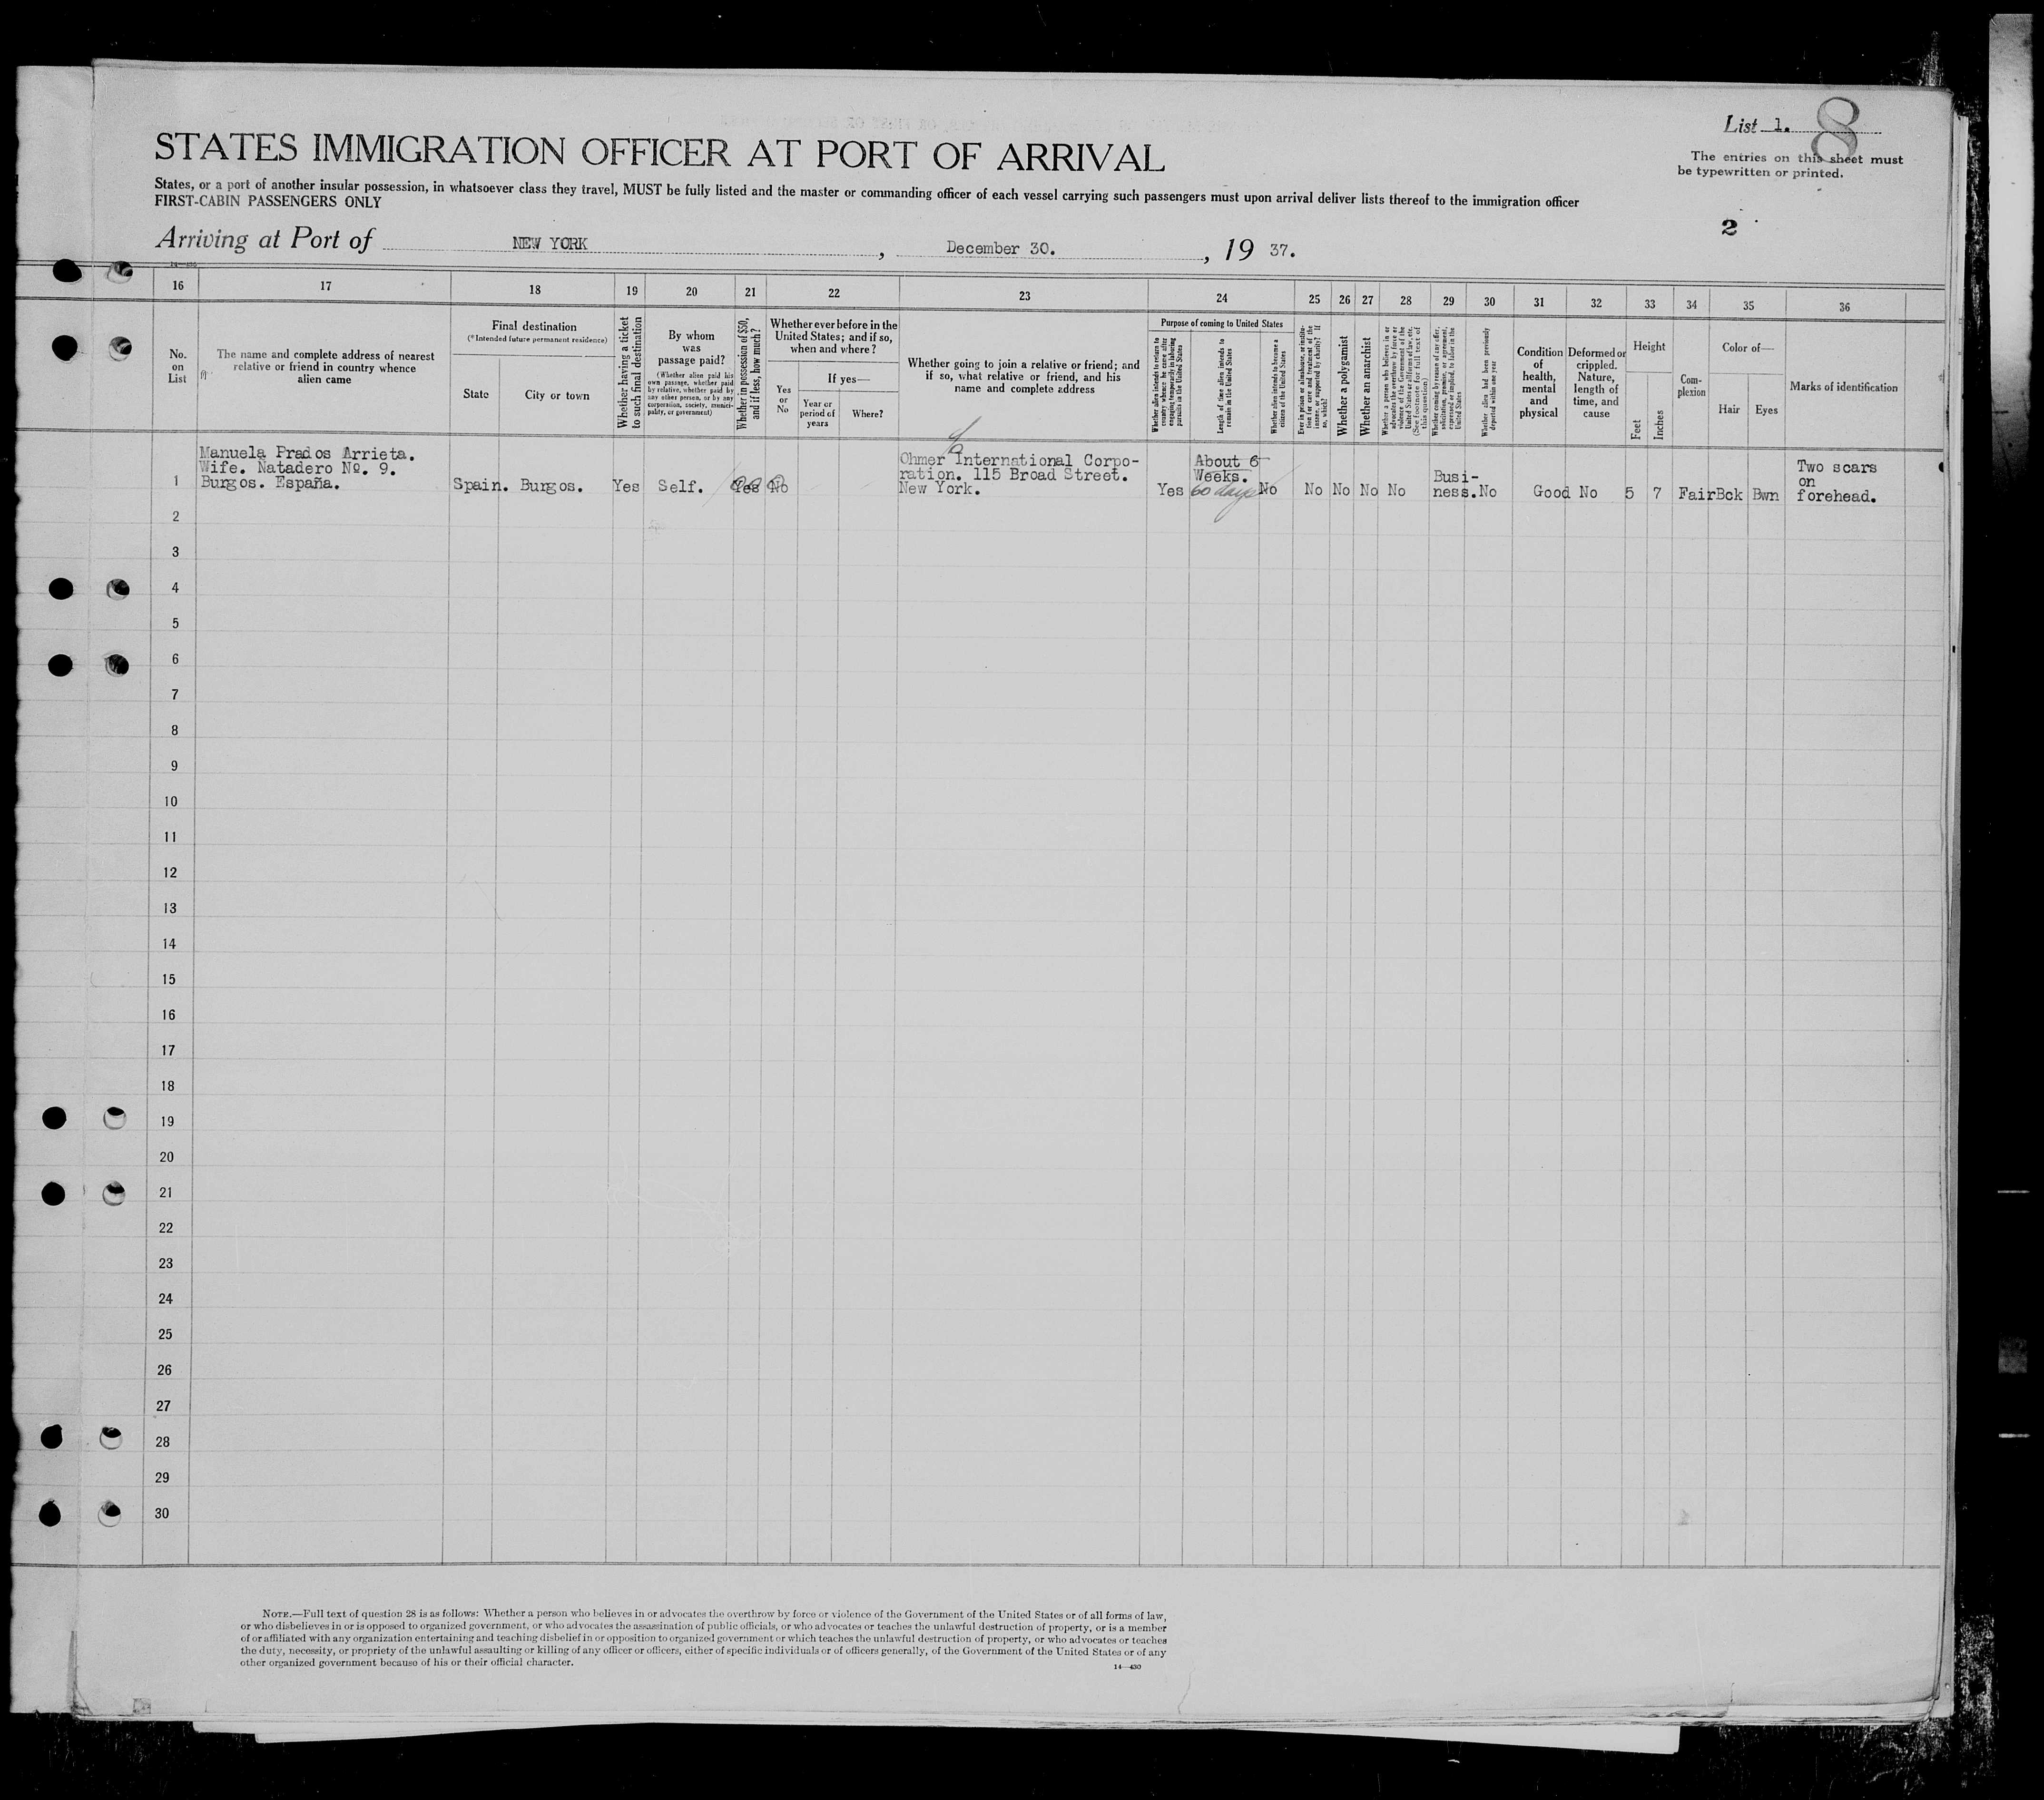 List 1. 8
The entries on this sheet must
be typewritten or printed.
STATES IMMIGRATION OFFICER AT PORT OF ARRIVAL
States, or a port of another insular possession, in whatsoever class they travel, MUST be fully listed and the master or commanding officer of each vessel carrying such passengers must upon arrival deliver lists thereof to the immigration officer
FIRST-CABIN PASSENGERS ONLY
2
Arriving at Port of NEW YORK, December 30., 19 37.
16 17 18 19 20 21 22 23 24 25 26 27 28 29 30 31 32 33 34 35 36
No.
on
List
The name and complete address of nearest
relative or friend in country whence
alien came
Final destination
(*Intended future permanent residence)
State
City or town
Whether having a ticket
to such final destination
By whom
was
passage paid?
(Whether alien paid his
own passage, whether paid
by relative, whether paid by
any other person, or by any
corporation, society, munici-
pality, or government)
Whether in possession of $50,
and if less, how much?
Whether ever before in the
United States; and if so,
when and where?
Yes
or
No
If yes—
Year or
period of
years
Where?
Whether going to join a relative or friend; and
if so, what relative or friend, and his
name and complete address
Purpose of coming to United States
Whether alien intends to return to
country whence he came after
engaging temporarily in laboring
pursuits in the United States
Length of time alien intends to
remain in the United States
Whether alien intends to become a
citizen of the United States
Ever in prison or almshouse, or institu-
tion for care and treatment of the
insane, or supported by charity? If
so, which?
Whether a polygamist
Whether an anarchist
Whether a person who believes in or
advocates the overthrow by force or
violence of the Government of the
United States or all forms of law, etc.
(See footnote for full text of
this question)
Whether coming by reason of any offer,
solicitation, promise, or agreement,
expressed or implied, to labor in the
United States
Whether alien had been previously
deported within one year
Condition
of
health,
mental
and
physical
Deformed or
crippled.
Nature,
length of
time, and
cause
Height
Feet
Inches
Com-
plexion
Color of—
Hair
Eyes
Marks of identification
1
Manuela Prados Arrieta.
Wife. Natadero Nº. 9.
Burgos. España.
Spain. Burgos. Yes Self. Yes No
Ohmer International Corpo-
ration. 115 Broad Street.
New York.
Yes
About 6
Weeks.
60 days
No No No No No
Busi-
ness. No Good No 5 7 Fair Bck Bwn
Two scars
on
forehead.
2
3
4
5
6
7
8
9
10
11
12
13
14
15
16
17
18
19
20
21
22
23
24
25
26
27
28
29
30
NOTE.—Full text of question 28 is as follows: Whether a person who believes in or advocates the overthrow by force or violence of the Government of the United States or of all forms of law,
or who disbelieves in or is opposed to organized government, or who advocates the assassination of public officials, or who advocates or teaches the unlawful destruction of property, or is a member
of or affiliated with any organization entertaining and teaching disbelief in or opposition to organized government or which teaches the unlawful destruction of property, or who advocates or teaches
the duty, necessity, or propriety of the unlawful assaulting or killing of any officer or officers, either of specific individuals or of officers generally, of the Government of the United States or of any
other organized government because of his or their official character.
14—430